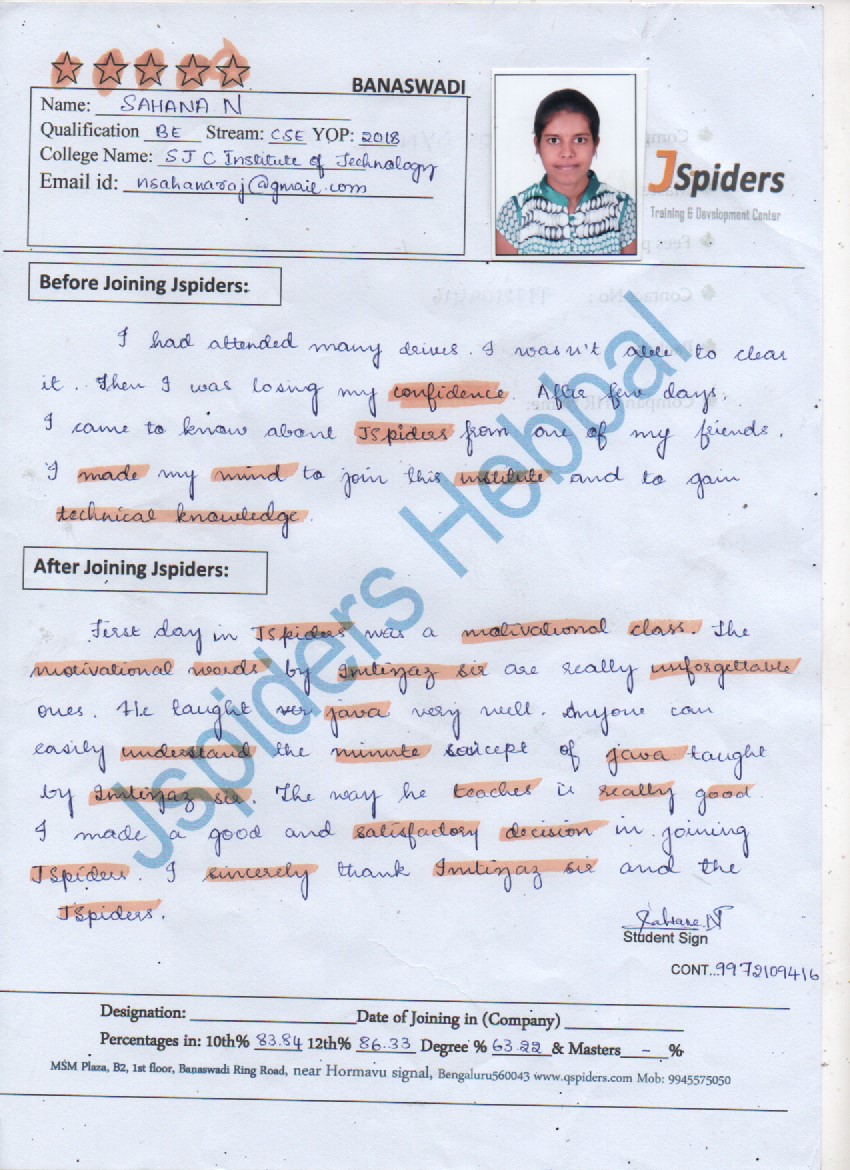 BANASWADI
Name: SAHANA N
Qualification BE Stream: CSE YOP: 2018
College Name: SJC Institute of Technology
Email id: nsahanaraj@gmail.com
JSpiders
Training & Development Center
Before Joining Jspiders:
I had attended many drives. I wasn't able to clear
it. Then I was losing my confidence. After few days,
I came to know about JSpiders from one of my friends.
I made my mind to join this institute and to gain
technical knowledge.
After Joining Jspiders:
First day in JSpiders was a motivational class. The
motivational words by Imtiyaz sir are really unforgettable
ones. He taught java very well. Anyone can
easily understand the minute concept of java taught
by Imtiyaz sir. The way he teaches is really good
I made a good and satisfactory decision in joining
JSpiders. I sincerely thank Imtiyaz sir and the
JSpiders.
Student Sign
CONT..9972109416
Designation: Date of Joining in (Company)
Percentages in: 10th% 83.84 12th% 86.33 Degree % 63.22 & Masters - %
MSM Plaza, B2, 1st floor, Banaswadi Ring Road, near Hormavu signal, Bengaluru560043 www.qspiders.com Mob: 9945575050
Jspiders Hebbal